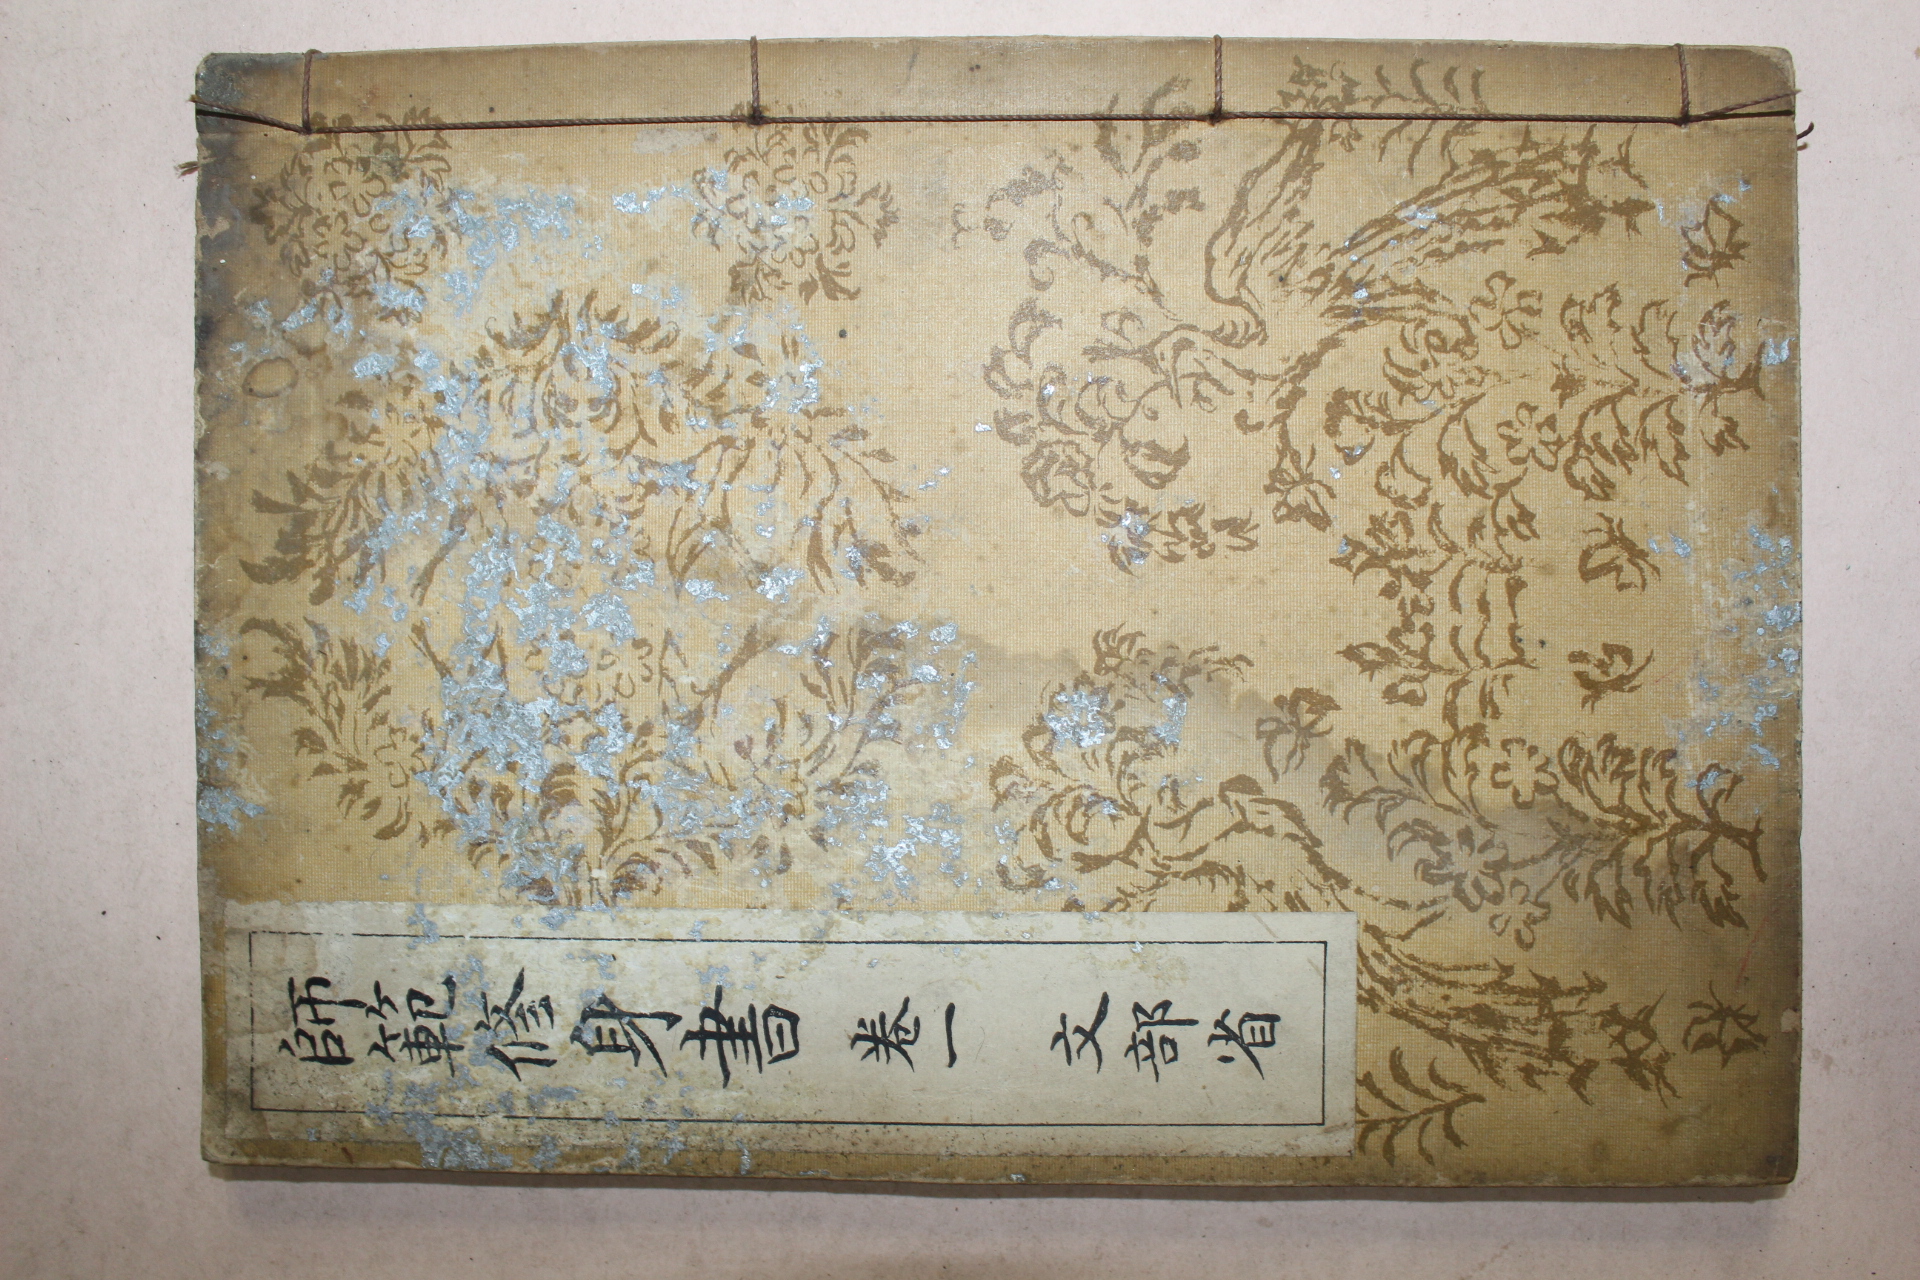 師範脩身書 卷一 文部省